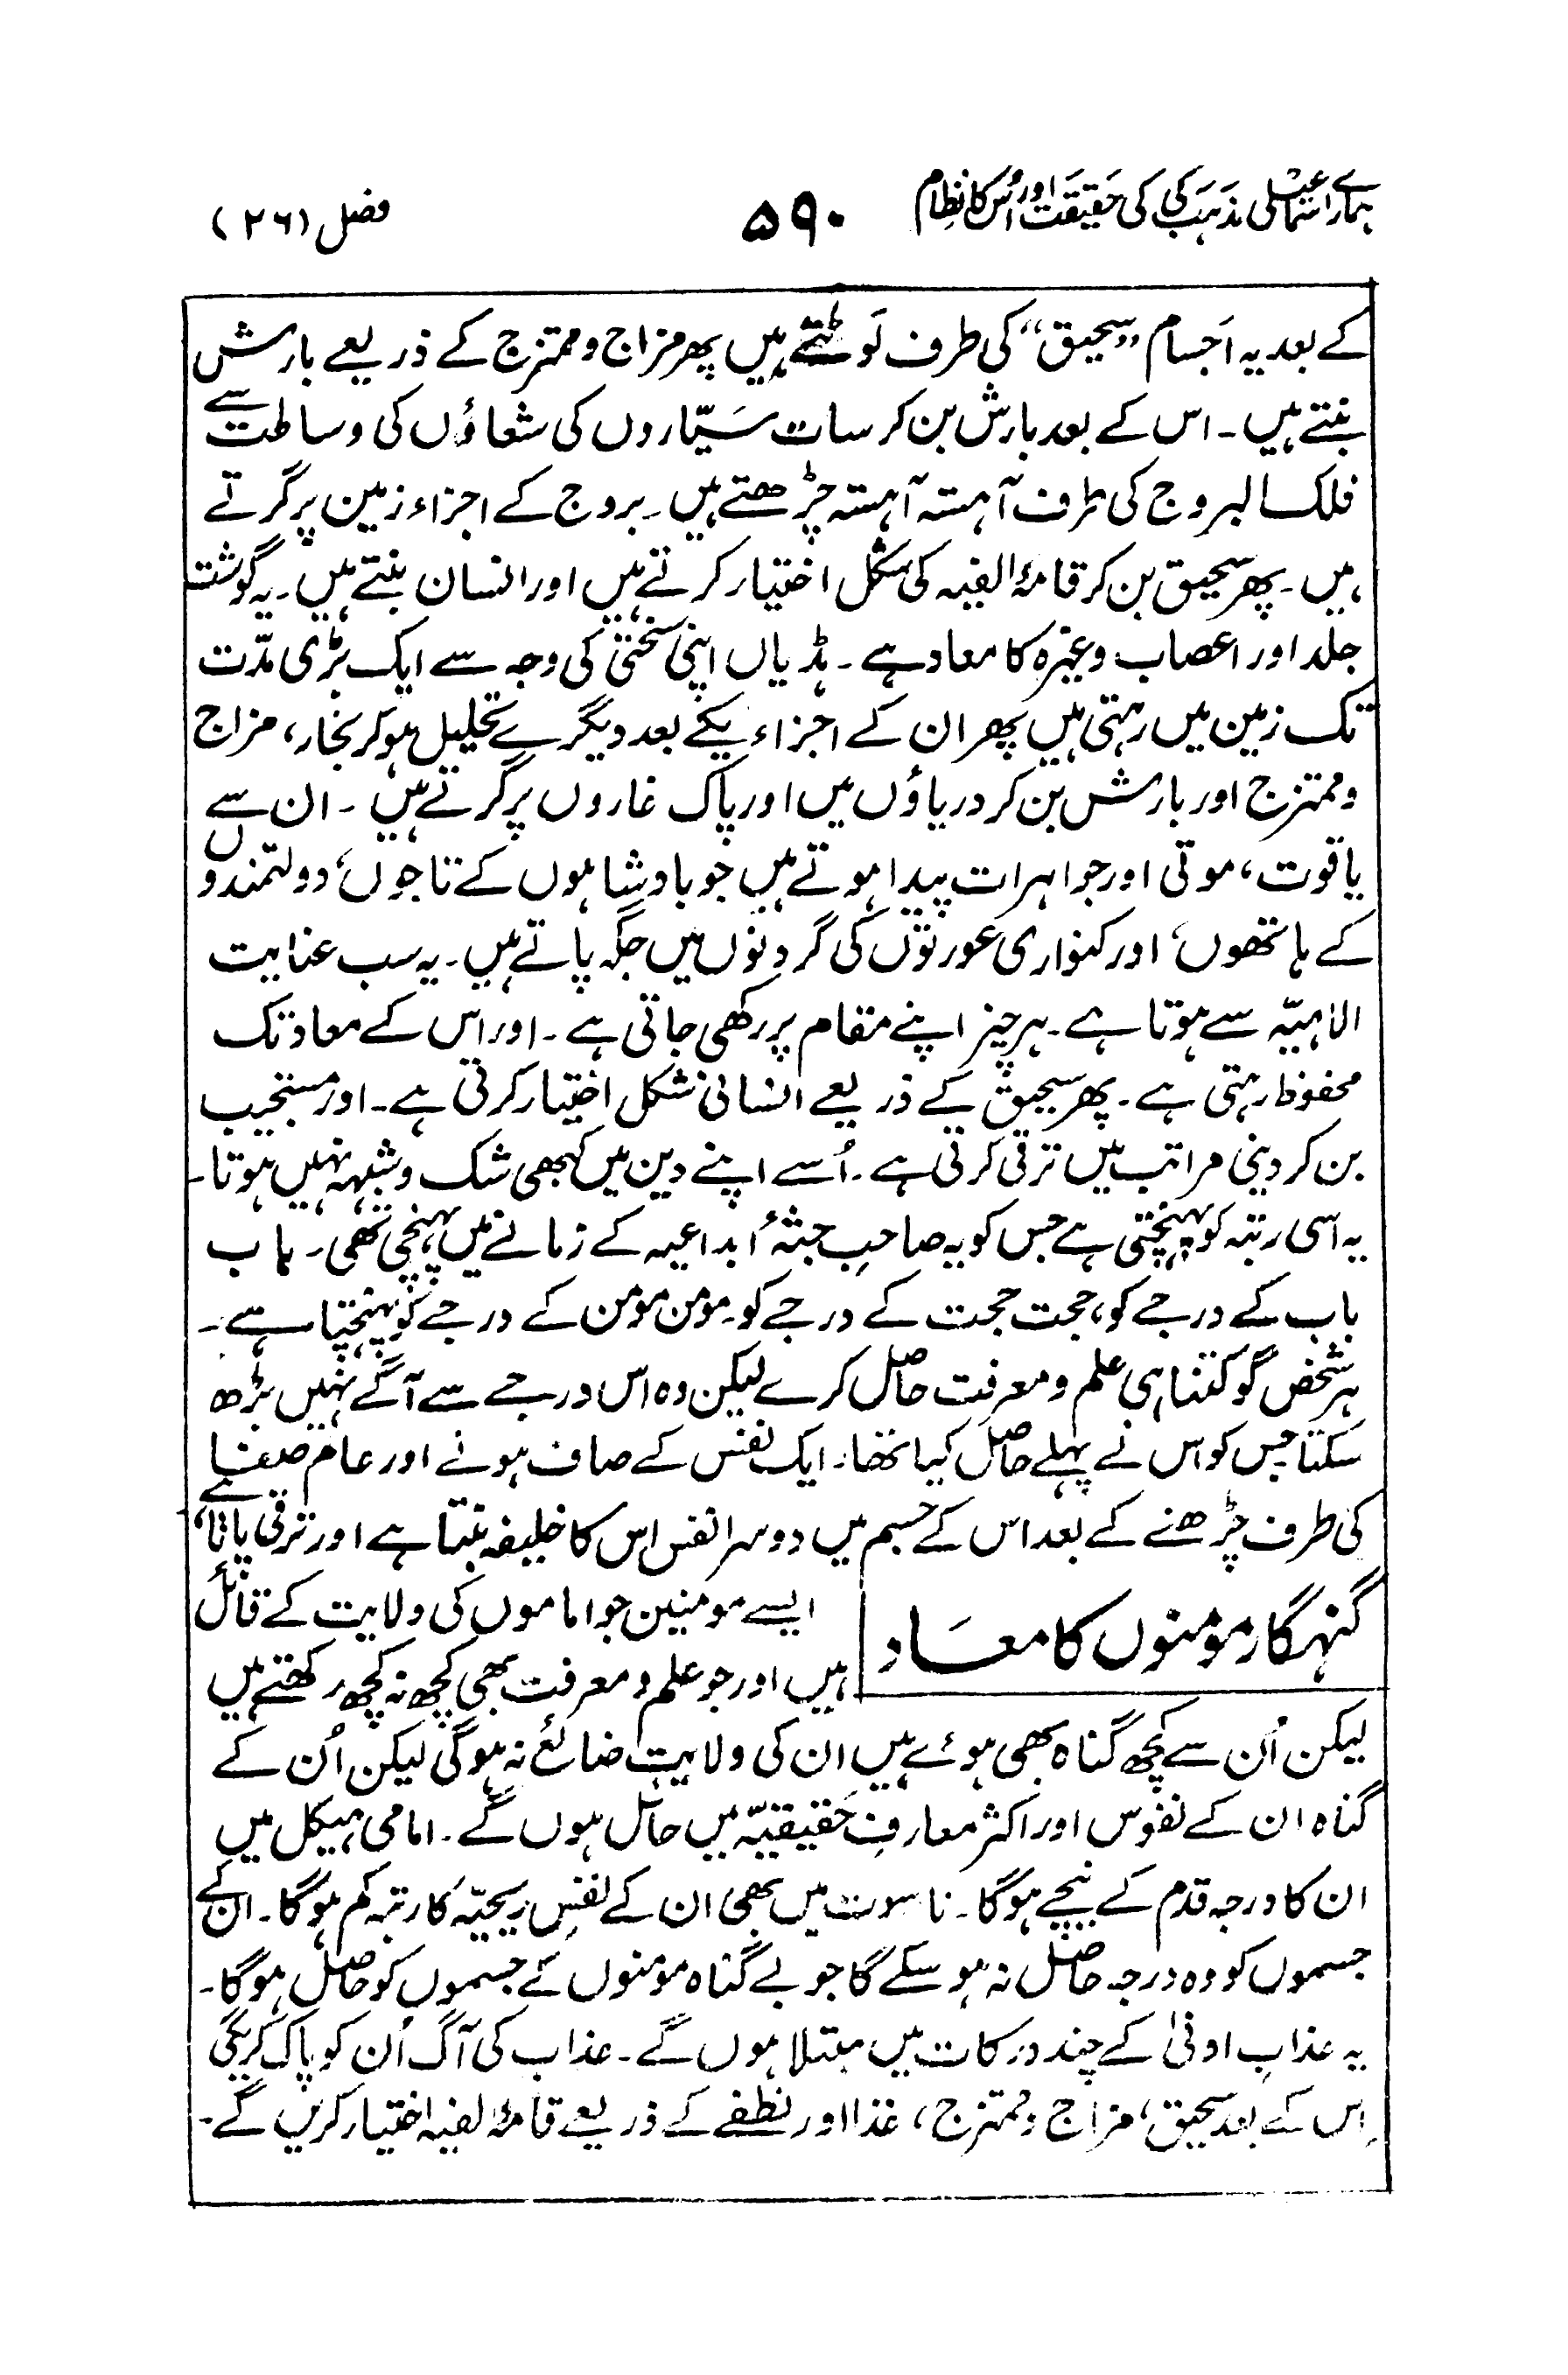 ہمارے اسماعیلی مذہب کی حقیقت اور اُس کا نظام ۵۹۰ فصل (۲۶)
کے بعد یہ اَجسام ”سحیق“ کی طرف لَوٹتے ہیں پھر مزاج و ممتزج کے ذریعے بارش
بنتے ہیں۔ اس کے بعد بارش بن کر سات سَیّاروں کی شعاؤں کی وساطت سے
فلک البروج کی طرف آہستہ آہستہ چڑھتے ہیں۔ بروج کے اجزاء زمین پر گرتے
ہیں۔ پھر سحیق بن کر قامۂ الفیہ کی شکل اختیار کرتے ہیں اور انسان بنتے ہیں۔ یہ گوشت
جلد اور اعصاب وغیرہ کا معاد ہے۔ ہڈیاں اپنی سختی کی وجہ سے ایک بڑی مدّت
تک زمین میں رہتی ہیں پھر ان کے اجزاء یکے بعد دیگرے تحلیل ہو کر بخار، مزاج
و ممتزج اور بارش بن کر دریاؤں میں اور پاک غاروں پر گرتے ہیں۔ ان سے
یاقوت، موتی اور جواہرات پیدا ہوتے ہیں جو بادشاہوں کے تاجوں، دولتمندوں
کے ہاتھوں، اور کنواری عورتوں کی گردنوں میں جگہ پاتے ہیں۔ یہ سب عنایت
الاہیّہ سے ہوتا ہے۔ ہر چیز اپنے مقام پر رکھی جاتی ہے۔ اور اس کے معاد تک
محفوظ رہتی ہے۔ پھر سحیق کے ذریعے انسانی شکل اختیار کرتی ہے۔ اور مستجیب
بن کر دینی مراتب میں ترقی کرتی ہے۔ اُسے اپنے دین میں کبھی شک و شبہہ نہیں ہوتا۔
یہ اسی رتبہ کو پہنچتی ہے جس کو یہ صاحبِ جثۂ ابداعیہ کے زمانے میں پہنچی تھی۔ باب
باب کے درجے کو، حجت حجت کے درجے کو۔ مومن مومن کے درجے کو پہنچتا ہے۔
ہر شخص گو کتنا ہی علم و معرفت حاصل کرے لیکن وہ اس درجے سے آگے نہیں بڑھ
سکتا جس کو اس نے پہلے حاصل کیا تھا۔ ایک نفس کے صاف ہونے اور عام صفا
کی طرف چڑھنے کے بعد اس کے جسم میں دوسرا نفس اس کا خلیفہ بنتا ہے اور ترقی پاتا ہے
گنہگار مومنوں کا معَاد
ایسے مومنین جو اماموں کی ولایت کے قائل
ہیں اور جو علم و معرفت بھی کچھ نہ کچھ رکھتے ہیں
لیکن اُن سے کچھ گناہ بھی ہوئے ہیں ان کی ولایت ضائع نہ ہوگی لیکن اُن کے
گناہ ان کے نفوس اور اکثر معارفِ حَقیقیّہ میں حائل ہوں گے۔ امامی ہیکل میں
ان کا درجہ قدم کے نیچے ہوگا۔ ناسوت میں بھی ان کے نفسِ ریحیّہ کا رتبہ کم ہوگا۔ ان کے
جسموں کو وہ درجہ حاصل نہ ہو سکے گا جو بے گناہ مومنوں کے جسموں کو حاصل ہوگا۔
یہ عذابِ ادنیٰ کے چند درکات میں مبتلا ہوں گے۔ عذاب کی آگ اُن کو پاک کریگی
اِس کے بعد سحیق، مزاج و ممتزج، غذا اور نطفے کے ذریعے قامۂ لفیہ اختیار کریں گے۔